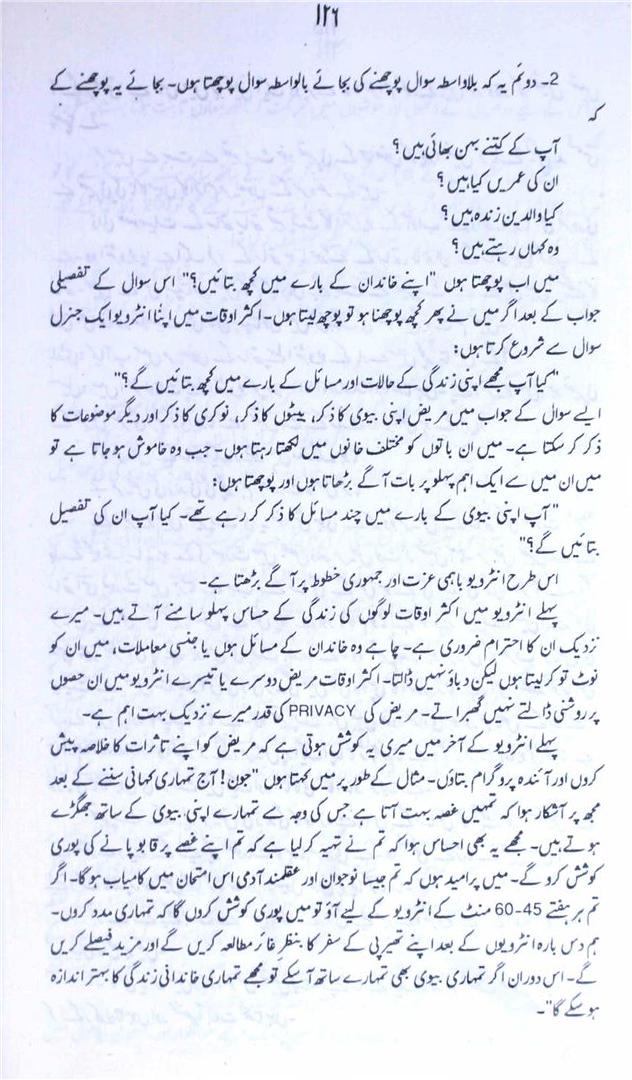 ۱۲۶
2۔ دوئم یہ کہ بلاواسطہ سوال پوچھنے کی بجائے بالواسطہ سوال پوچھتا ہوں۔ بجائے یہ پوچھنے کے
کہ
آپ کے کتنے بہن بھائی ہیں؟
ان کی عمریں کیا ہیں؟
کیا والدین زندہ ہیں؟
وہ کہاں رہتے ہیں؟
میں اب پوچھتا ہوں "اپنے خاندان کے بارے میں کچھ بتائیں؟" اس سوال کے تفصیلی
جواب کے بعد اگر میں نے پھر کچھ پوچھنا ہو تو پوچھ لیتا ہوں۔ اکثر اوقات میں اپنا انٹرویو ایک جنرل
سوال سے شروع کرتا ہوں:
"کیا آپ مجھے اپنی زندگی کے حالات اور مسائل کے بارے میں کچھ بتائیں گے؟"
ایسے سوال کے جواب میں مریض اپنی بیوی کا ذکر، بیٹوں کا ذکر، نوکری کا ذکر اور دیگر موضوعات کا
ذکر کر سکتا ہے۔ میں ان باتوں کو مختلف خانوں میں لکھتا رہتا ہوں۔ جب وہ خاموش ہو جاتا ہے تو
میں ان میں سے ایک اہم پہلو پر بات آگے بڑھاتا ہوں اور پوچھتا ہوں:
"آپ اپنی بیوی کے بارے میں چند مسائل کا ذکر کر رہے تھے۔ کیا آپ ان کی تفصیل
بتائیں گے؟"
اس طرح انٹرویو باہمی عزت اور جمہوری خطوط پر آگے بڑھتا ہے۔
پہلے انٹرویو میں اکثر اوقات لوگوں کی زندگی کے حساس پہلو سامنے آتے ہیں۔ میرے
نزدیک ان کا احترام ضروری ہے۔ چاہے وہ خاندان کے مسائل ہوں یا جنسی معاملات، میں ان کو
نوٹ تو کر لیتا ہوں لیکن دباؤ نہیں ڈالتا۔ اکثر اوقات مریض دوسرے یا تیسرے انٹرویو میں ان حصوں
پر روشنی ڈالتے نہیں گھبراتے۔ مریض کی PRIVACY کی قدر میرے نزدیک بہت اہم ہے۔
پہلے انٹرویو کے آخر میں میری یہ کوشش ہوتی ہے کہ مریض کو اپنے تاثرات کا خلاصہ پیش
کروں اور آئندہ پروگرام بتاؤں۔ مثال کے طور پر میں کہتا ہوں "جون! آج تمہاری کہانی سننے کے بعد
مجھ پر آشکار ہوا کہ تمہیں غصہ بہت آتا ہے جس کی وجہ سے تمہارے اپنی بیوی کے ساتھ جھگڑے
ہوتے ہیں۔ مجھے یہ بھی احساس ہوا کہ تم نے تہیہ کر لیا ہے کہ تم اپنے غصے پر قابو پانے کی پوری
کوشش کرو گے۔ میں پرامید ہوں کہ تم جیسا نوجوان اور عقلمند آدمی اس امتحان میں کامیاب ہو گا۔ اگر
تم ہر ہفتے 45-60 منٹ کے انٹرویو کے لیے آؤ تو میں پوری کوشش کروں گا کہ تمہاری مدد کروں۔
ہم دس بارہ انٹرویوں کے بعد اپنے تھیرپی کے سفر کا بنظر غائر مطالعہ کریں گے اور مزید فیصلے کریں
گے۔ اس دوران اگر تمہاری بیوی بھی تمہارے ساتھ آسکے تو مجھے تمہاری خاندانی زندگی کا بہتر اندازہ
ہو سکے گا"۔